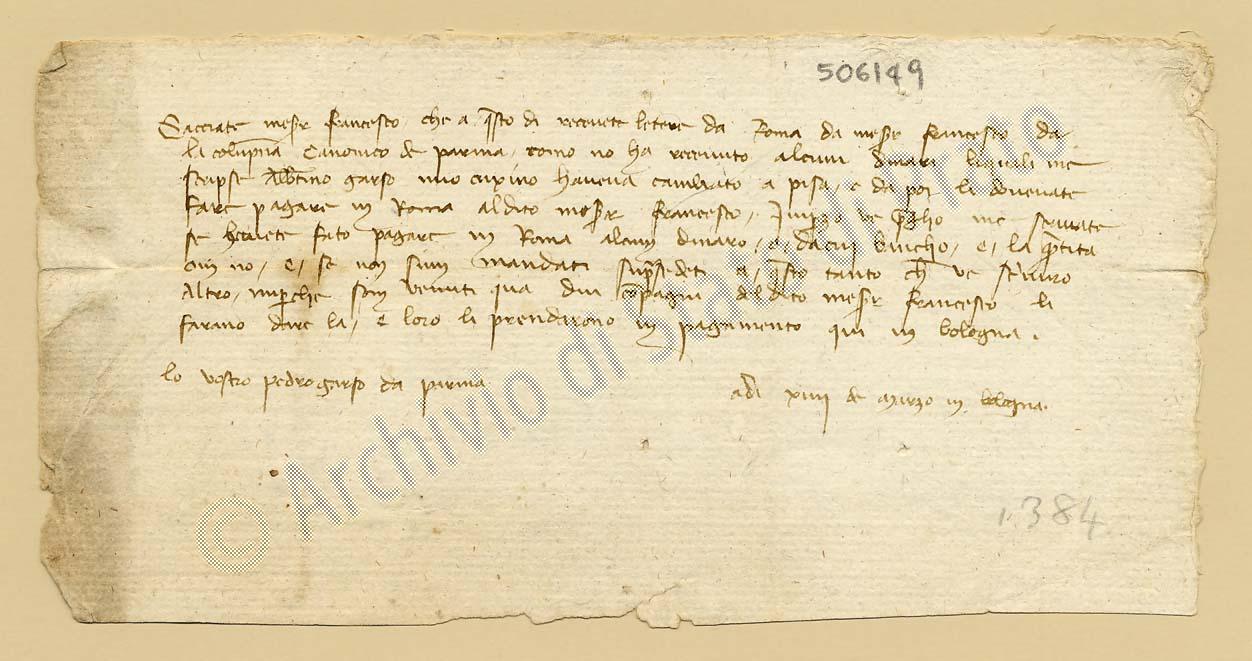 506149
Sacciate meser francesco, che a q̄sto di recevete letere da Roma da meser francesco da
la colūpna Canonico de parma, como no ha recevuto alcuni dinari li quali me
scripse Albertino garso mio cuxino haveva cambiato a pisa, e da poi li dovevate
fare pagare in Roma al dito meser francesco, ve p̄gho me scrivate
se havete fato pagare in Roma alcuni dinaro, e da cui bancho, e, la p̄tita
om no, e, se non sum mandati sup̄sedeti a, q̄sto tanto ch̄ ve scrivro
Altro, imperche som venuti qua dui cōpagni del dito meser francesco li
farano dare la, e loro li prendarono in pagamento qui in bologna.
lo vostro pedro garso da parma
adi xiiii de marzo in bologna.
1384
© Archivio di Stato di Prato